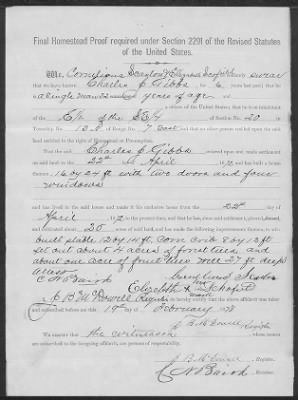 Final Homestead Proof required under Section 2291 of the Revised Statutes
of the United States.
We, Cornelious Scrayton & Elizabeth do swear
that we have known Charles J. Gibbs for 6 years past; that he
a single man years of age
a citizen of the United States; that he is an inhabitant
of the of the SE/4 of Section No. 20 in
Township No. 13 of Range No. 7 East and that no other person resided upon the said
land entitled to the right of Homestead or Pre-emption.
That the said Charles J. Gibbs entered upon and made settlement
on said land on the 22nd day of April, 1872, and has built a house
16 by 24 ft with two doors and four
windows
and has lived in the said house and made it his exclusive home from the 22nd day of
April, 1872 to the present time, and that he has, since said settlement, plowed, fenced,
and cultivated about 20 acres of said land, and has made the following improvements, to wit:
built stable 12 by 14 ft Corn Crib 8 by 12 ft
set out about 4 acres of forest trees, and
about one acre of fruit trees well 27 ft deep
C. N. Baird
Elizabeth her mark
I, J. B. McDowell, Register do hereby certify that the above affidavit was taken
and subscribed before me this 19th day of February, 1878
J. B. McDowell Register
We certify that the witnesses
are respectable.
J. B. McDowell, Register.
C. N. Baird, Receiver.